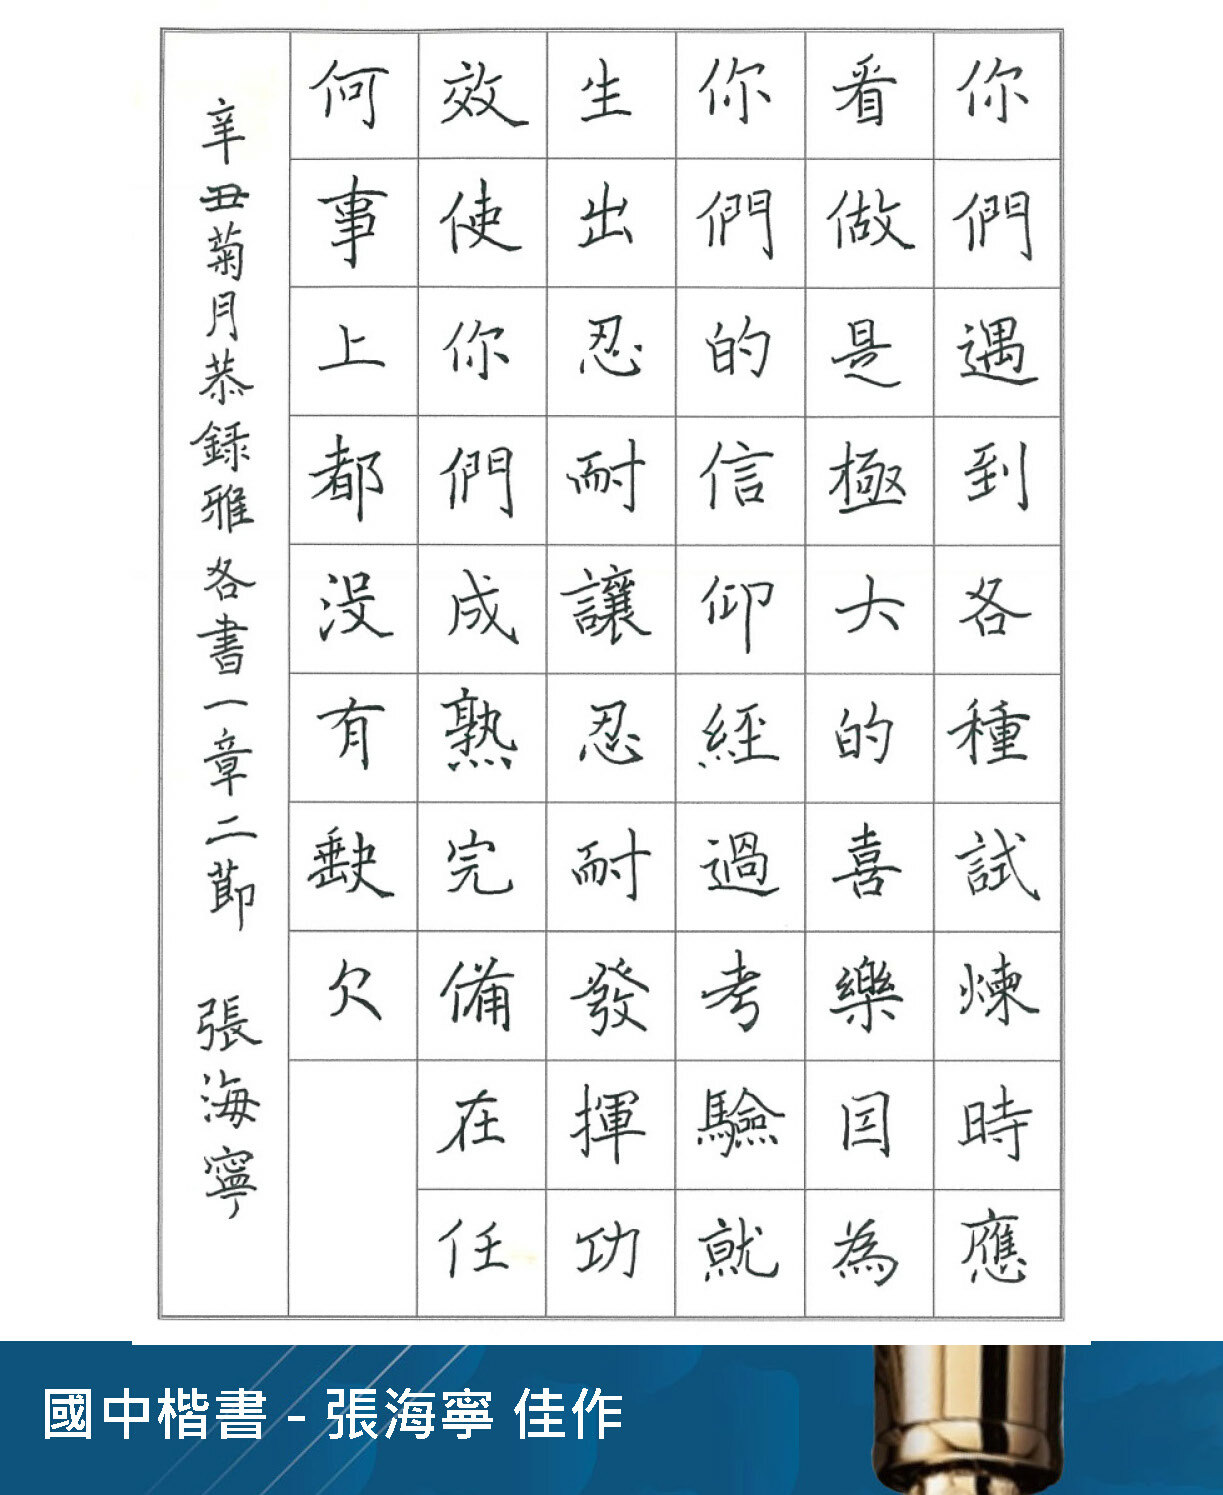 你們遇到各種試煉時應
看做是極大的喜樂因為
你們的信仰經過考驗就
生出忍耐讓忍耐發揮功
效使你們成熟完備在任
何事上都沒有缺欠
辛丑菊月恭錄雅各書一章二節 張海寧
國中楷書 - 張海寧 佳作